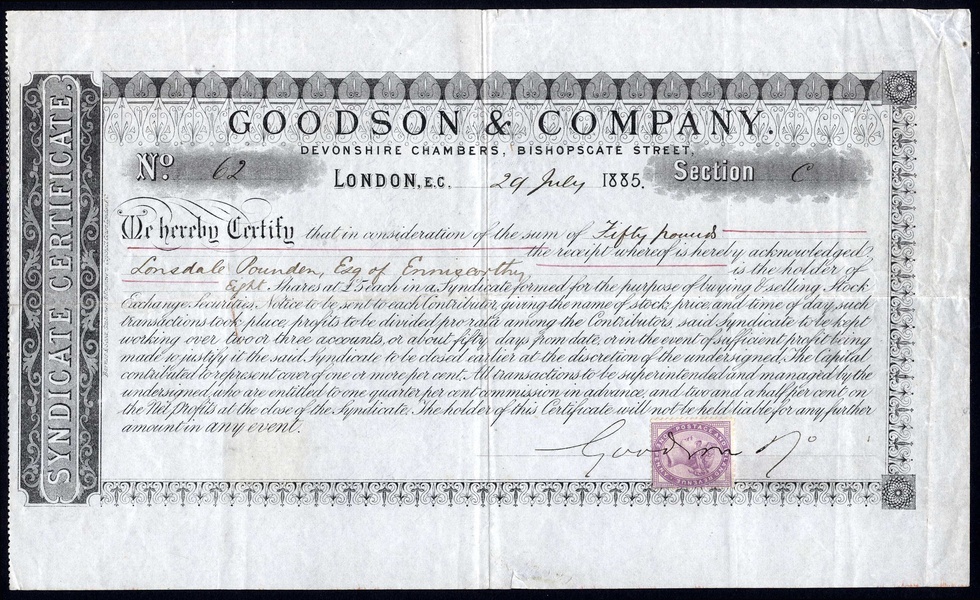 SYNDICATE CERTIFICATE.
GOODSON & COMPANY.
DEVONSHIRE CHAMBERS, BISHOPSGATE STREET,
No. 62
LONDON, E.C. 29 July 1885.
Section C
We hereby Certify that in consideration of the sum of Fifty pounds
the receipt whereof is hereby acknowledged
Lonsdale Pounden, Esq of Enniscorthy, is the holder of
Shares at £5 each in a Syndicate formed for the purpose of buying & selling Stock
Exchange Securities. Notice to be sent to each Contributor, giving the name of stock, price, and time of day, such
transactions took place, profits to be divided pro rata among the Contributors, said Syndicate to be kept
working over two or three accounts, or about fifty days from date, or in the event of sufficient profit being
made to justify it the said Syndicate to be closed earlier at the discretion of the undersigned. The Capital
contributed to represent cover of one or more per cent. All transactions to be superintended and managed by the
undersigned, who are entitled to one quarter per cent commission in advance, and two and a half per cent on
the Net Profits at the close of the Syndicate. The holder of this Certificate will not be held liable for any further
amount in any event.
Goodson
POSTAGE AND
REVENUE